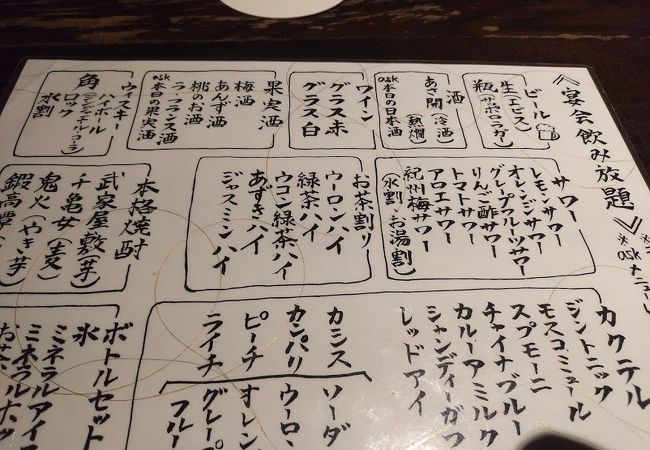 《宴会飲み放題》
ビール
生(エビス)
瓶(サッポロラガー)
酒
あさ開(冷酒)(熱燗)
ask 本日の日本酒
ワイン
グラス赤
グラス白
果実酒
梅酒
あんず酒
桃のお酒
ラ・フランス酒
ask 本日の果実酒
ウィスキー
角
ハイボール
ロック
水割
サワー
レモンサワー
オレンジサワー
グレープフルーツサワー
りんご酢サワー
トマトサワー
アロエサワー
紀州梅サワー
(水割・お湯割)
お茶割り
ウーロンハイ
緑茶ハイ
ウコン緑茶ハイ
あずきハイ
ジャスミンハイ
本格焼酎
武家屋敷(芋)
千亀女(麦)
鬼火(やき芋)
カクテル
ジントニック
モスコミュール
スプモーニ
チャイナブルー
カルーアミルク
シャンディーガフ
レッドアイ
カシス
カンパリ
ピーチ
ライチ
ソーダ
ウーロ
オレン
グレープ
フルー
ボトルセット
氷
ミネラル